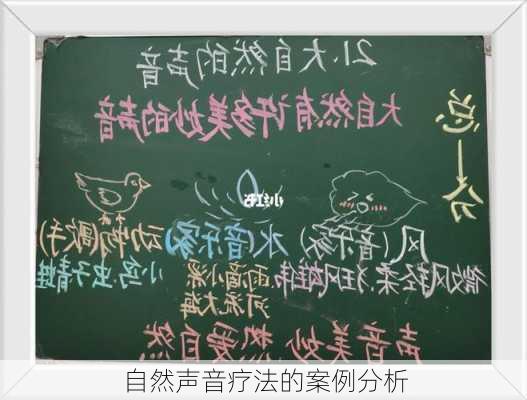 21.大自然的声音
大自然有许多美妙的声音
总→分
小红书
风(音乐家) 水(音乐家) 动物(歌手)
微风轻柔.狂风雄伟 雨音小溪 小鸟虫子青蛙
河流大海
声音美妙 热爱自然
自然声音疗法的案例分析